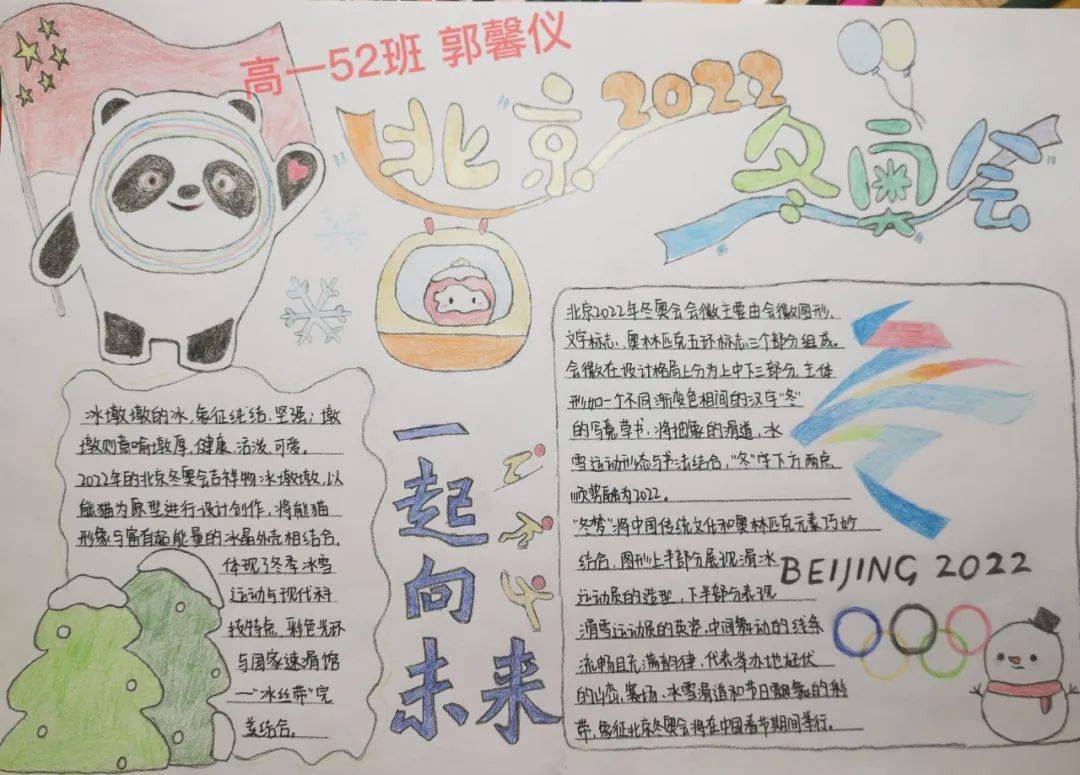 高一52班 郭馨仪
"北京"2022
冬奥会"
冰墩墩的冰,象征纯结、坚强;墩
墩则意喻墩厚、健康、活泼、可爱。
2022年的北京冬奥会吉祥物冰墩墩,以
熊猫为原型进行设计创作,将熊猫
形象与富有超能量的冰晶外壳相结合,
体现了冬季冰雪
运动与现代科
技特点,彩色光环
与国家速滑馆
—"冰丝带"完
美结合。
一起向未来
北京2022年冬奥会会徽主要由会徽图形、
文字标志、奥林匹克五环标志三个部分组成。
会徽在设计格局上分为上中下三部分,主体
形如一个不同渐变色相间的汉字"冬"
的写意草书,将抽象的滑道、冰
雪运动形态与书法结合,"冬"字下方两点
顺势融为2022。
"冬梦"将中国传统文化和奥林匹克元素巧妙
结合,图形上半部分展现滑冰
运动员的造型,下半部分表现
滑雪运动员的英姿,中间舞动的线条
流畅且充满韵律,代表举办地起伏
的山峦、赛场、冰雪滑道和节日飘舞的彩
带,象征北京冬奥会将在中国春节期间举行。
BEIJING 2022